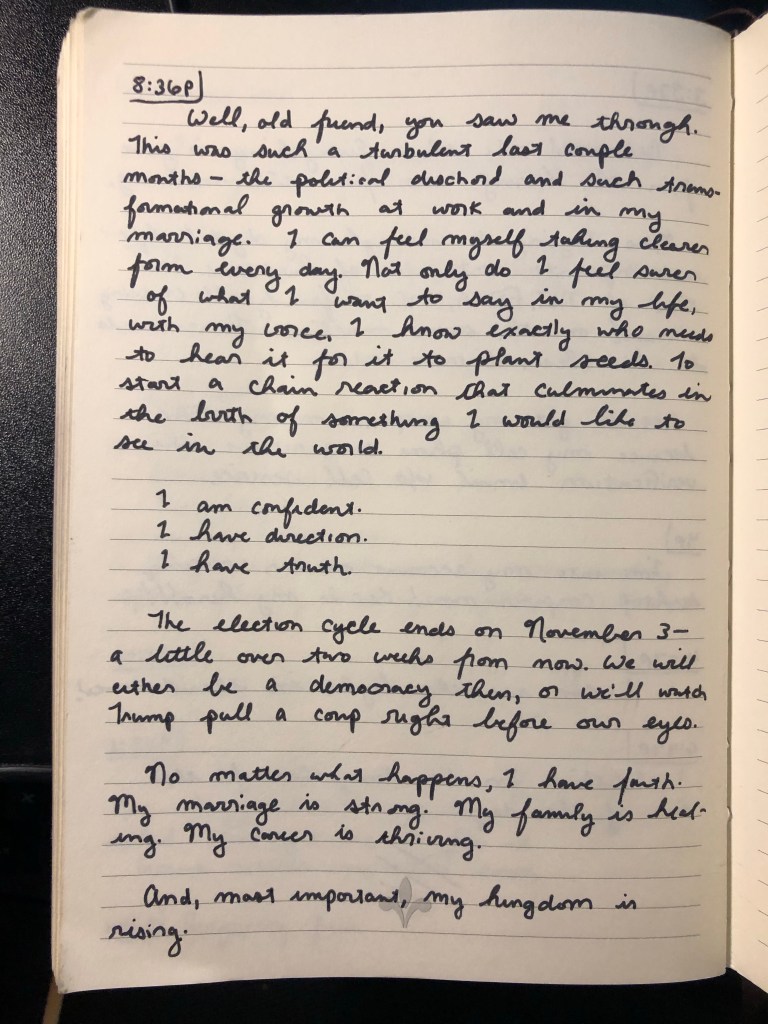 8:36P
Well, old friend, you saw me through.
This was such a turbulent last couple
months – the political dischord and such trans-
formational growth at work and in my
marriage. I can feel myself taking clearer
form every day. Not only do I feel surer
of what I want to say in my life,
with my voice, I know exactly who needs
to hear it for it to plant seeds. To
start a chain reaction that culminates in
the birth of something I would like to
see in the world.
I am confident.
I have direction.
I have truth.
The election cycle ends on November 3–
a little over two weeks from now. We will
either be a democracy then, or we'll watch
Trump pull a coup right before our eyes.
No matter what happens, I have faith.
My marriage is strong. My family is heal-
ing. My career is thriving.
And, most important, my kingdom is
rising.